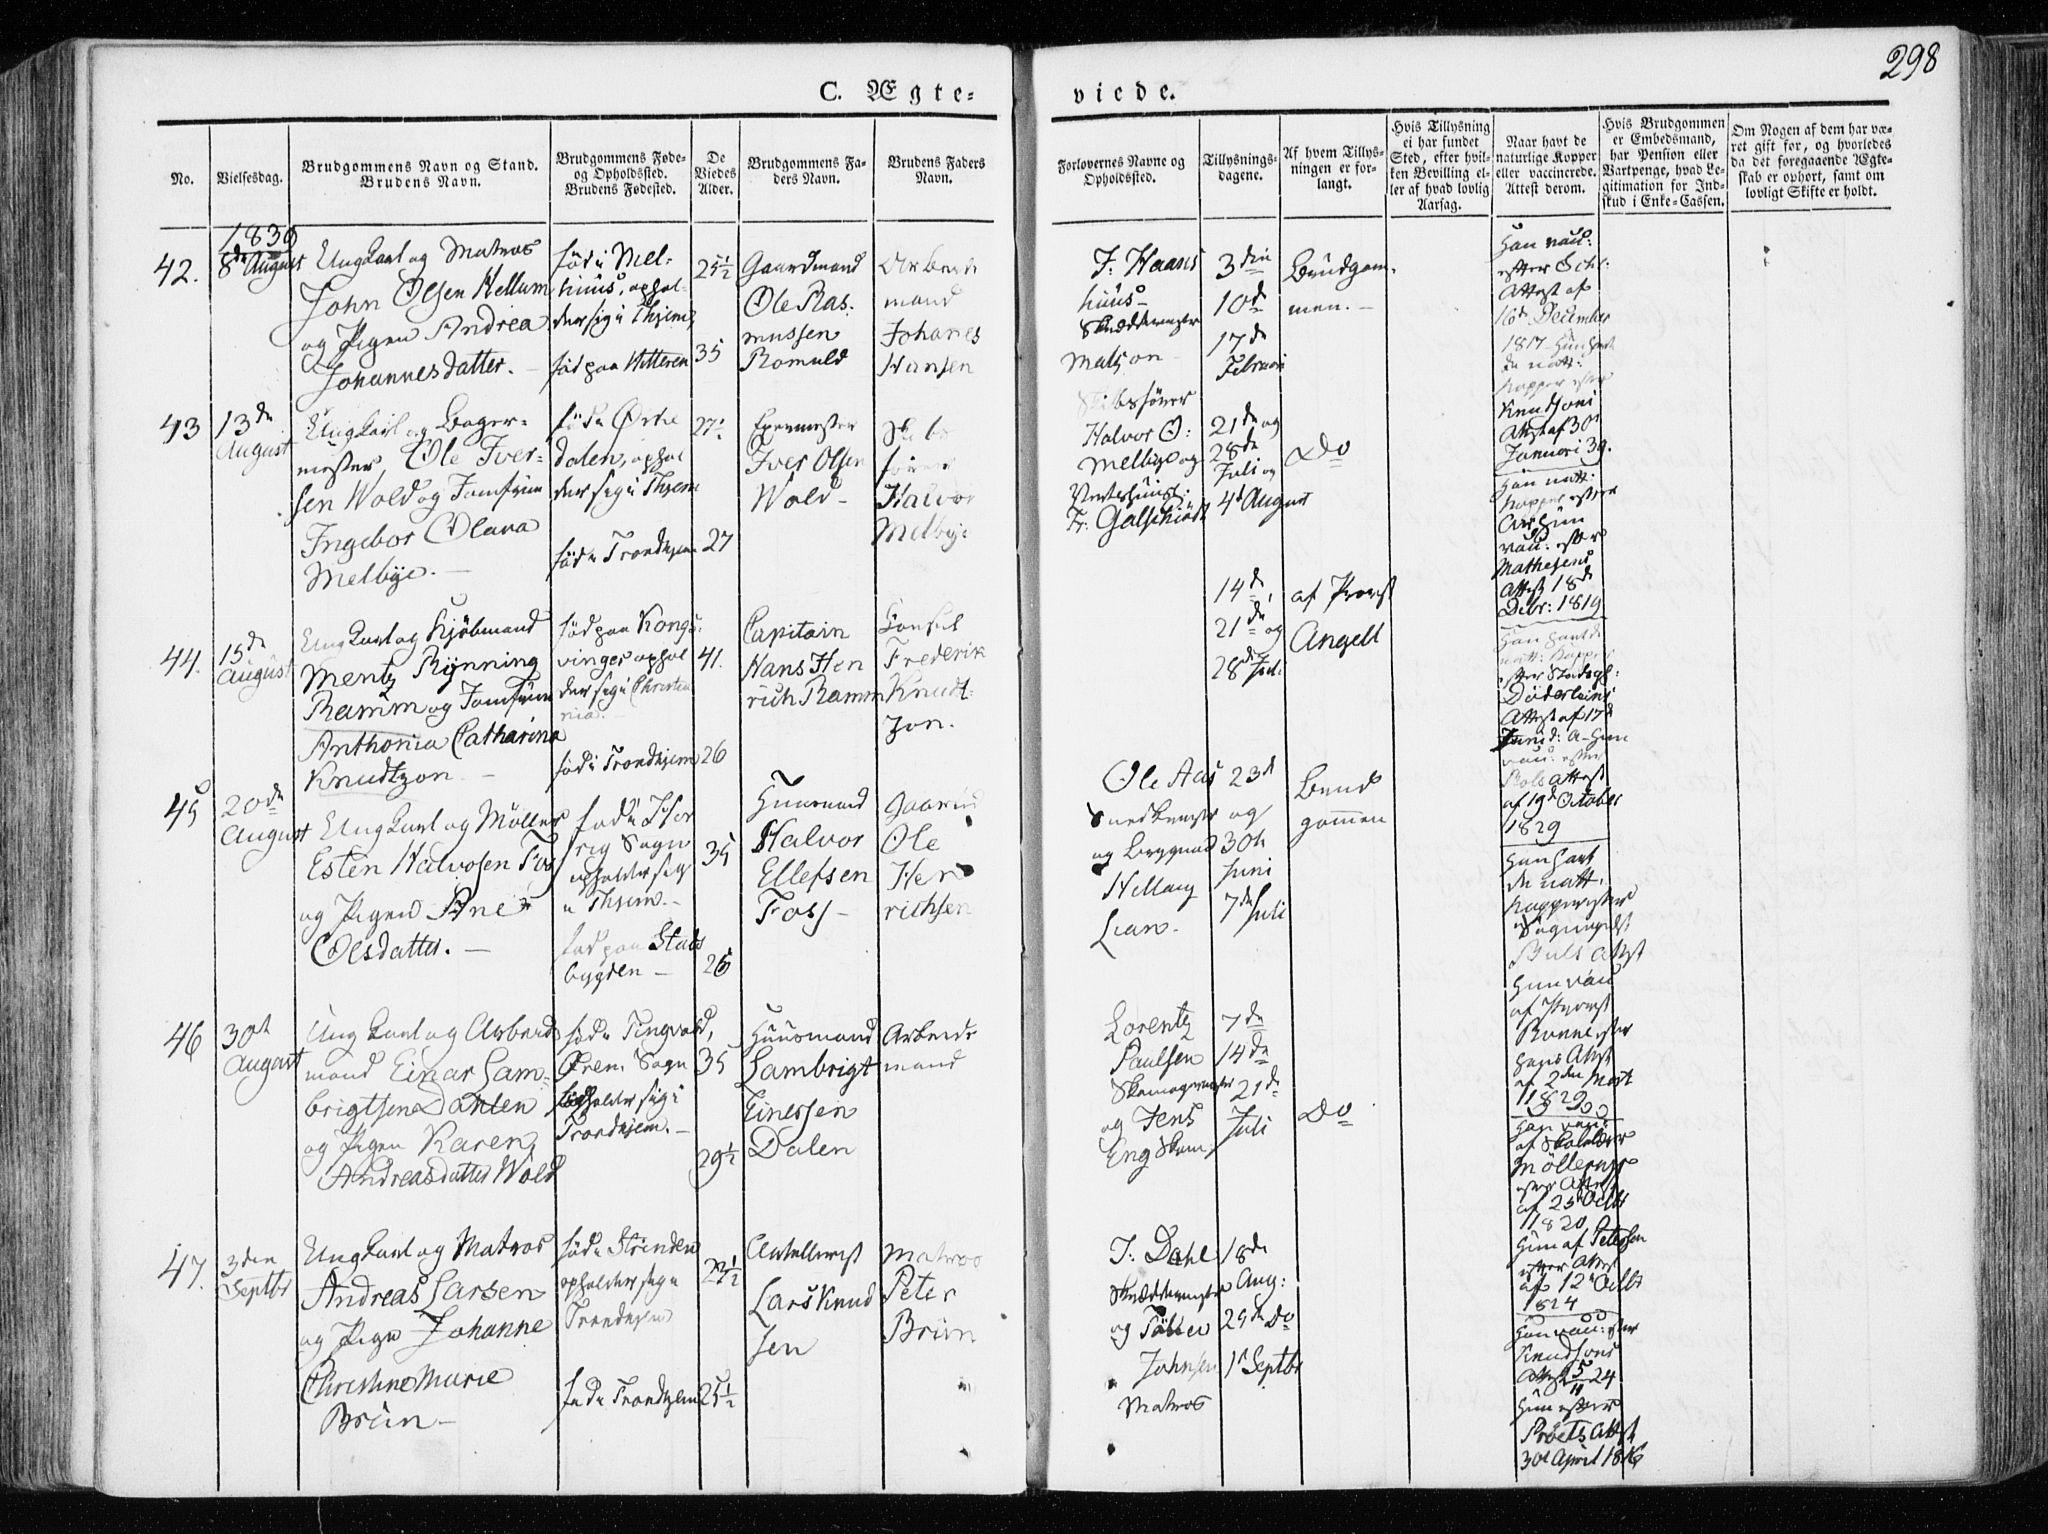 298
C. Ægte-
viede.
No.
Vielsesdag.
Brudgommens Navn og Stand.
Brudens Navn.
Brudgommens Føde-
og Opholdssted.
Brudens Fødested.
De
Viedes
Alder.
Brudgommens Fa-
ders Navn.
Brudens Faders
Navn.
Forlovernes Navne og
Opholdssted.
Tillysnings-
dagene.
Af hvem Tillys-
ningen er for-
langt.
Hvis Tillysning
ei har fundet
Sted, efter hvil-
ken Bevilling el-
ler af hvad lovlig
Aarsag.
Naar havt de
naturlige Kopper
eller vaccinerede.
Attest derom.
Hvis Brudgommen
er Embedsmand,
har Pension eller
Vartpenge, hvad Le-
gitimation for Ind-
skud i Enke-Cassen.
Om Nogen af dem har væ-
ret gift før, og hvorledes
da det foregaaende Ægte-
skab er ophørt, samt om
lovligt Skifte er holdt.
1830
42.
8de August
Ungkarl og Matros
John Olsen Kellum
og Pigen Andrea
Johannesdatter. -
fød i Mel-
huus, ophol-
der sig i Thjem,
fød paa Hitteren
25½
35
Gaardmand
Ole Ras-
mussen
Romuld
Arbeids
mand
Johanes
Hansen
J: Haans
huus
Skræddermester
Matzon
3die
10de
17de
Februari
Brudgom-
men. -
Han vacc:
efter Schr:
Attest af
16de December
1817 Hun havt
de natt:
kopper efter
Knudtzons
Attest af 30te
Januari 30.
43
13de
August
Ungkarl og Bager-
mester Ole Iver-
sen Wold og Jomfrue
Ingebor Olava
Melbye. -
fød i Ørke
dalen, ophol
der sig i Thjem
fød i Trondhjem
27
27
Iver Olsen
Wold -
Skibs
fører
Halvor
Melbye
Skibsfører
Halvor O:
Melbye og
Fr: Galschiødt
21de og
28de
Juli og
4de August
Do
Han natt:
kopper efter
Arr Hun
vacc: efter
Mathesens
Attest 18de
Decbr: 1819
44.
15de
August
Ungkarl og Kjøbmand
Mentz Rynning
Ramm og Jomfrue
Anthonia Catharina
Knudtzon -
fød paa Kongs-
vinger ophol
der sig i Christia
nia. -
fød i Trondhjem
41.
26
Capitain
Hans Hen
rich Ramm
Consul
Frederik
Knudt-
zon.
14de,
21de og
28de Jul:
af Provst
Angell
Han havt de
natt: kopper
efter Stadsph:
Døderleins
Attest af 17de
Juni d: A- Hun
vacc: efter
Attest
af 19de October
1829
45
20de
August
Ungkarl og Møller
Esten Halvorsen Fos
og Pigen Ane
Olsdatter. -
fød i
Sogn
opholder sig
i Thjem. -
fød paa Stads
bygden -
35
26
Huusmand
Halvor
Ellefsen
Foss -
Gaardmd
Ole
Hen
richsen
Ole Aas
Snedkermester
og Borgmand
Lian -
23de
og
30te
Juni
7de Juli
Brud
gommen
Han havt
de natt.
kopper efter
Sognepræst
Buls Attest
Hun vacc
af Provst
efter
hans Attest
af 2den Mart
1829
46
30te
August
Ungkarl og Arbeids
mand Einar Lam-
brigtsen Dahlen
og Pigen Karen
Andreasdatter Wold
fød i Tingvold,
Ørens Sogn
opholder sig i
Trondhjem. -
35
29½
Huusmand
Lambrigt
Einersen
Dalen
Arbeids
mand
Lorentz
Paulsen
Skomagermester
og Jens
Eng Skom
7de
14de
21de
Juli
Do
Han vacc:
af Skolelærer
efter Attest
af 25de Octbr
1820
Hun af Petersen
efter Attest
af 12te Octbr
1824
47.
3den
Septbr
Ungkarl og Matros
Andreas Larsen
og Pige Johanne
Christine Marie
Bruun -
fød i Strinden
opholder sig i
Trondhjem
fød i Trondhjem
23½
25½
Lars Knud
sen
Matros
Peter
Bruun
J: Dahl
Skræddermester
og
Johnsen
Matros
18de
Aug:
25de Do
1ste Septbr
Han vacc: efter
Knudtzons
Attest 5/4 24
Hun efter
Attest
30te April 1816